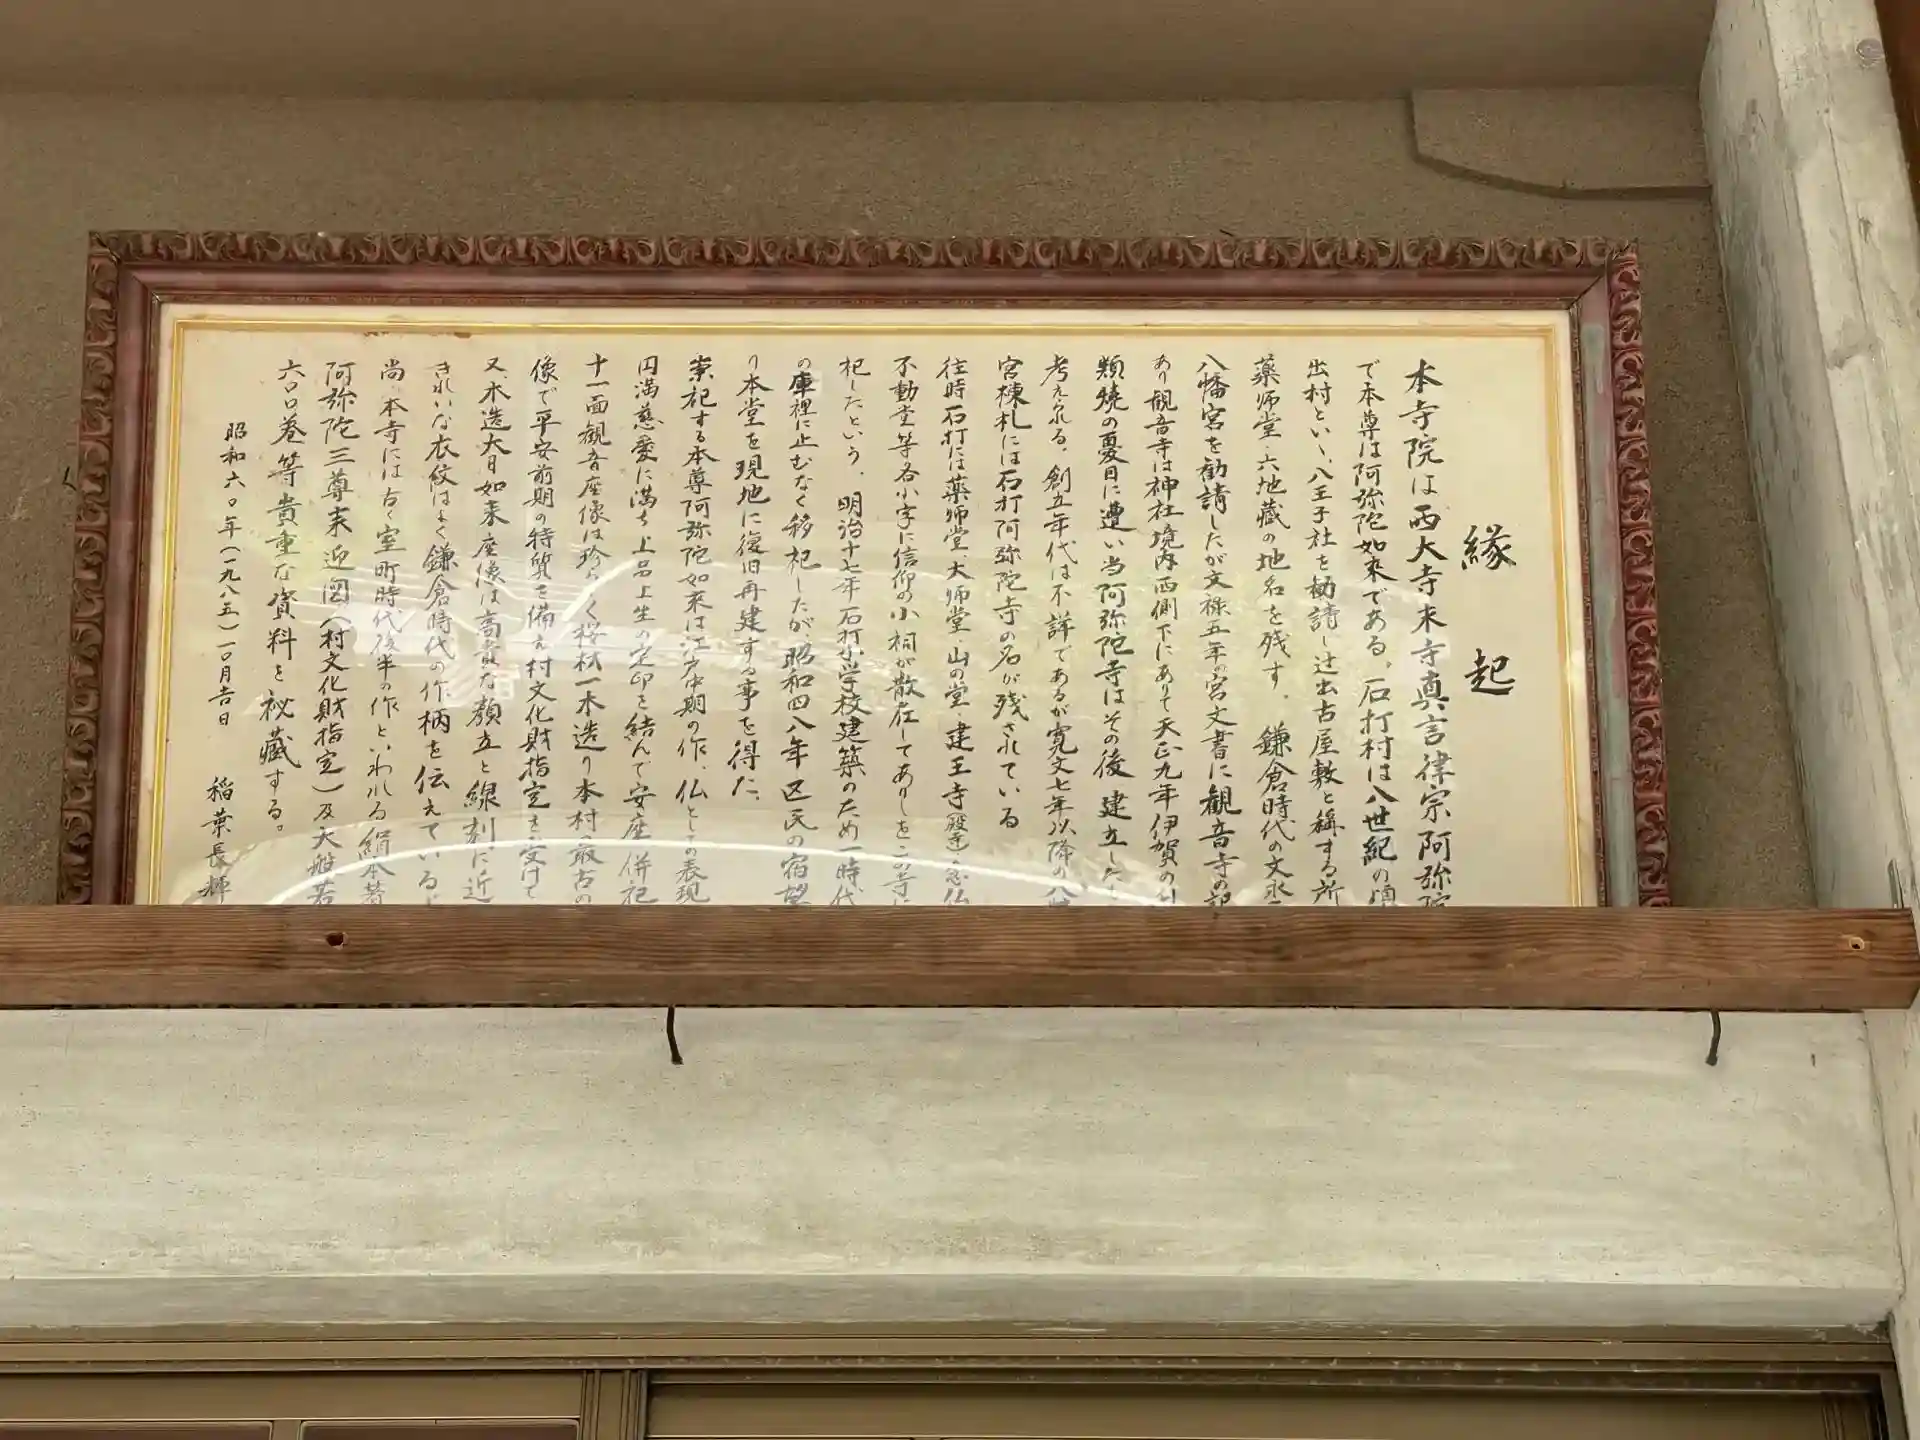 縁起
本寺院は西大寺末寺真言律宗阿弥陀
で本尊は阿弥陀如来である。石打村は八世紀の頃
出村といい、八王子社を勧請し辻出古屋敷と稱する所
薬師堂、六地蔵の地名を残す。鎌倉時代の文永
八幡宮を勧請したが文禄五年の宮文書に観音寺の記
あり観音寺は神社境内西側下にありて天正九年伊賀の乱
類焼の憂目に遭い当阿弥陀寺はその後建立した
考え見る。創立年代は不詳であるが寛文七年以降の八幡
宮棟札には石打阿弥陀寺の名が残されている
往時石打には薬師堂、大師堂、山の堂、建王寺(殿寺)念仏
不動堂等各小字に信仰の小祠が散在してありしをこの寺に
祀したという。明治十七年石打小学校建築のため一時代
の庫裡に止むなく移祀したが、昭和四八年区民の宿望
り本堂を現地に復旧再建する事を得た。
崇祀する本尊阿弥陀如来は江戸中期の作、仏としての表現
円満慈愛に満ち上品上生の定印を結んで安座、併祀
十一面観音座像は珍らしく桜材一木造り本村最古の
像で平安前期の特質を備え村文化財指定を受けて
又、木造大日如来座像は高貴な顔立と線刻に近
きれいな衣紋はよく鎌倉時代の作柄を伝えている
尚、本寺には古く室町時代後半の作といわれる絹本著
阿弥陀三尊来迎図(村文化財指定)及大般若
六〇〇巻等貴重な資料を秘蔵する。
昭和六〇年(一九八五)一〇月吉日 稲葉長輝